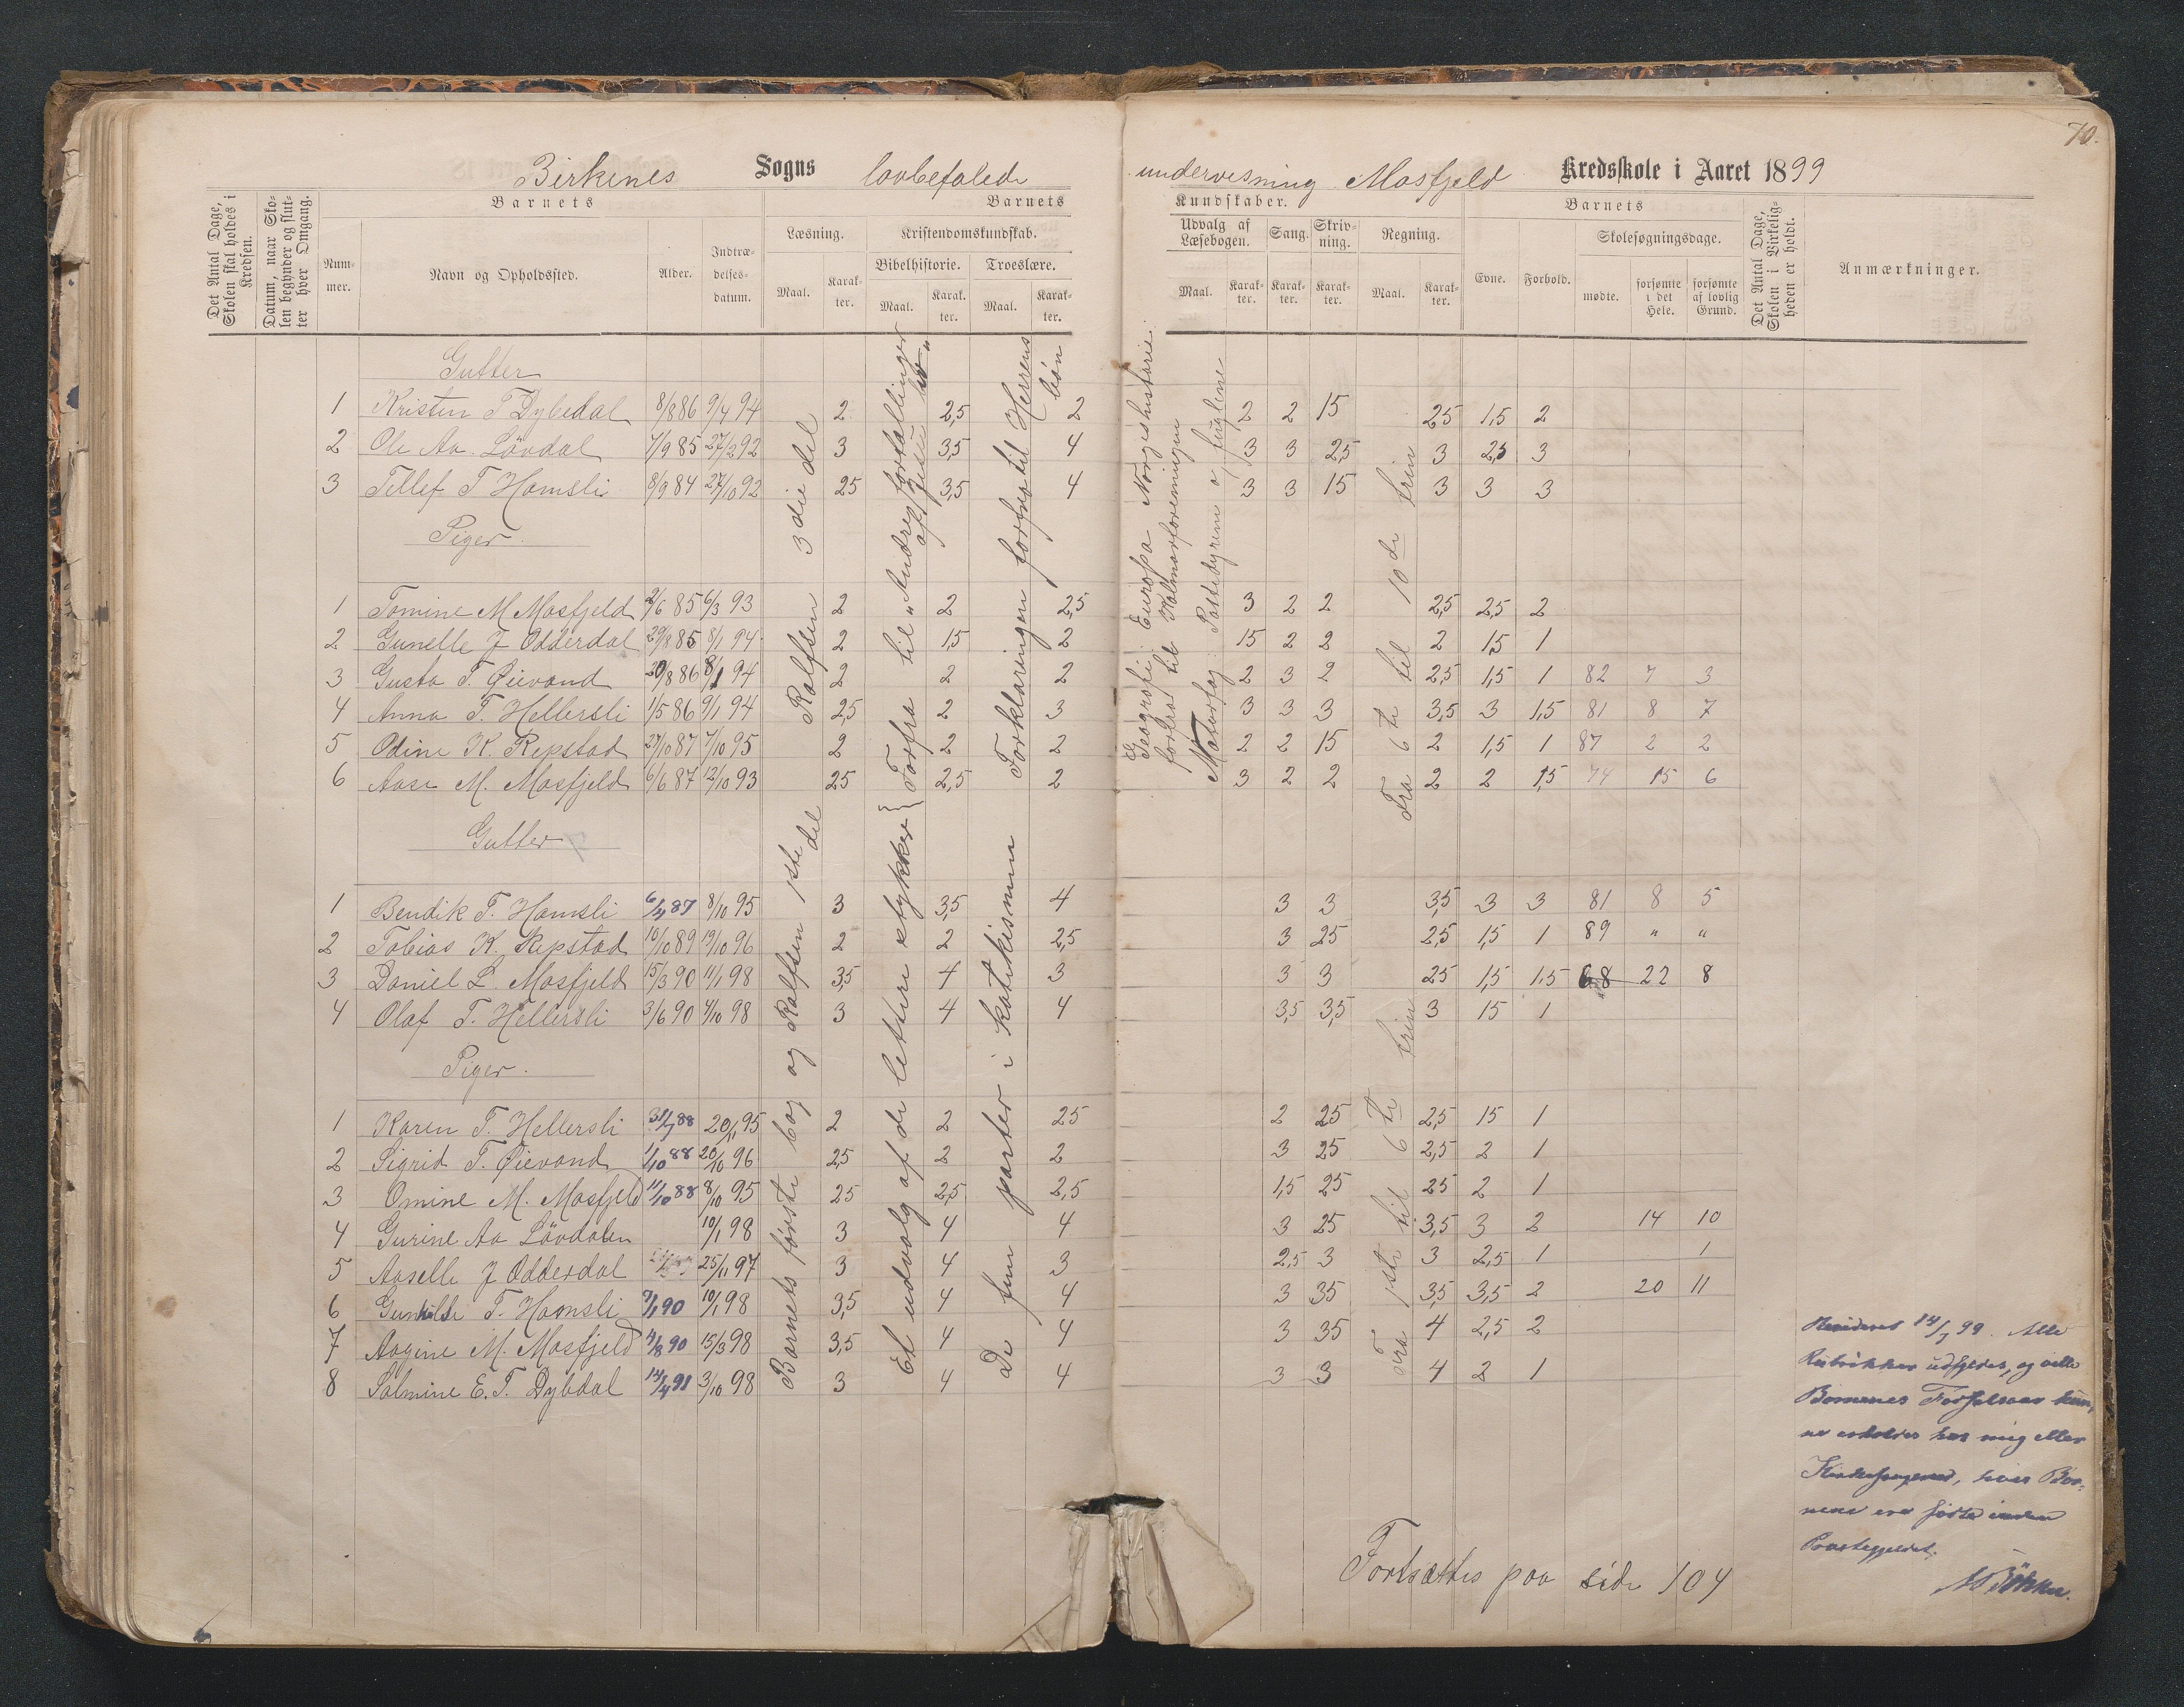 70.
Birkenes Sogns lovbefalede undervisning Mosfjeld Kredsskole i Aaret 1899
Det Antal Dage, Skolen skal holdes i Kredsen.
Datum, naar Skolen begynder og slutter hver Omgang.
Barnets
Nummer.
Navn og Opholdssted.
Alder.
Indtrædelsesdatum.
Barnets
Kundskaber.
Læsning.
Maal.
Karakter.
Kristendomskundskab.
Bibelhistorie.
Maal.
Karakter.
Troeslære.
Maal.
Karakter.
Udvalg af Læsebogen.
Maal.
Karakter.
Sang.
Karakter.
Skrivning.
Karakter.
Regning.
Maal.
Karakter.
Barnets
Evne.
Forhold.
Skolesøgningsdage.
mødte.
forsømte i det Hele.
forsømte af lovlig Grund.
Det Antal Dage, Skolen i Virkeligheden er holdt.
Anmærkninger.
Gutter
1 Kristen T Dybedal 8/8 86 9/4 94 2 2,5 2 2 2 15 25 1,5 2
2 Ole Aa. Lövdal 7/9 85 27/2 92 3 3,5 4 3 3 2,5 3 2,5 3
3 Tellef T Hamsli 8/9 84 27/10 92 25 3,5 4 3 3 15 3 3 3
Piger.
1 Tomine M Mosfjeld 2/6 85 6/3 93 2 2 2,5 3 2 2 2,5 2,5 2
2 Gunelle J Odderdal 29/8 85 8/1 94 2 1,5 2 15 2 2 2 15 1
3 Gusta T. Øievand 20/8 86 8/1 94 2 2 2 2 3 2 2,5 1,5 1 82 7 3
4 Anna T. Hellersli 1/5 86 9/1 94 2,5 2 3 3 3 3 3,5 3 1,5 81 8 7
5 Odine K. Repstad 27/10 87 7/10 95 2 2 2 2 2 15 2 1,5 1 87 2 2
6 Aase M. Mosfjeld 6/6 87 12/10 93 25 2,5 2 3 2 2 2 2 1,5 74 15 6
Gutter
1 Bendik T. Hamsli 6/4 87 8/10 95 3 3,5 4 3 3 3,5 3 3 81 8 5
2 Tobias K. Repstad 10/10 89 19/10 96 2 2 2,5 3 25 2,5 1,5 1 89 " "
3 Daniel L. Mosfjeld 15/3 90 11/1 98 3,5 4 3 3 3 25 1,5 1.5 68 22 8
4 Olaf T. Hellersli 3/6 90 4/10 98 3 4 4 3,5 3,5 3 15 1
Piger.
1 Karen T. Hellersli 31/7 88 20/1 95 2 2 25 2 25 2,5 15 1
2 Sigrid T. Øievand 1/10 88 20/10 96 2,5 2 2 3 25 2,5 2 1
3 Omine M. Mosfjeld 11/10 88 8/10 95 25 2,5 2,5 1,5 25 25 2 1
4 Gurine Aa Lövdalen 10/1 98 3 4 4 3 25 3,5 3 2 14 10
5 Aaselle J Odderdal 25/11 97 3 4 3 2,5 3 3 2,5 1 1
6 Gunhilde T. Hamsli 9/1 90 10/1 98 3,5 4 4 3 35 3,5 3,5 2 20 11
7 Aagine M. Mosfjeld 4/8 90 15/3 98 3,5 4 4 3 35 4 2,5 2
8 Salmine E. T. Dybdal 14/4 91 3/10 98 3 4 4 3 3 4 2 1
Rolfsen 3die del
Forfra til "Andre fortællinger af Jesu liv"
Forklaringen forfra til Herrens bön
Geografi: Europa Norgeshistorie
forfra til Kalmarforeningen
Naturfag: Pattedyrene og fuglene
Fra 6te til 10de trin
Barnets første bog og Rolfsen 1ste del
Et udvalg af de lettere stykker }
De fem parter i katekismen
Fra 1ste til 6te trin
Revideret 14/7 99. Alle
Rubrikker udfyldes, og ville
Børnenes Fødselsaar kun-
ne erholdes hos mig eller
Kirkesangeren, hvis Bør-
nene ere födte inden
Præstegjeldet.
Fortsættes paa side 104